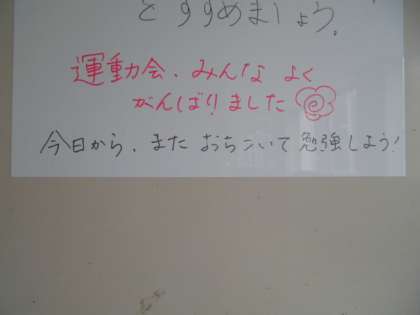 とすすめましょう。
運動会、みんな よく
がんばりました
今日から、また おちついて 勉強しよう!